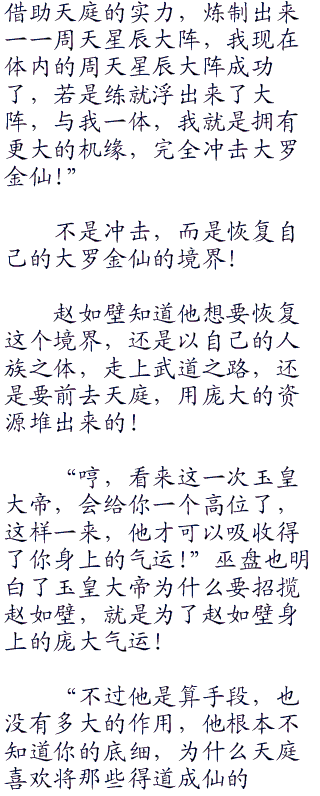 借助天庭的实力，炼制出来
一一周天星辰大阵，我现在
体内的周天星辰大阵成功
了，若是练就浮出来了大
阵，与我一体，我就是拥有
更大的机缘，完全冲击大罗
金仙！”
不是冲击，而是恢复自
己的大罗金仙的境界！
赵如壁知道他想要恢复
这个境界，还是以自己的人
族之体，走上武道之路，还
是要前去天庭，用庞大的资
源堆出来的！
“哼，看来这一次玉皇
大帝，会给你一个高位了，
这样一来，他才可以吸收得
了你身上的气运！”巫盘也明
白了玉皇大帝为什么要招揽
赵如壁，就是为了赵如壁身
上的庞大气运！
“不过他是算手段，也
没有多大的作用，他根本不
知道你的底细，为什么天庭
喜欢将那些得道成仙的